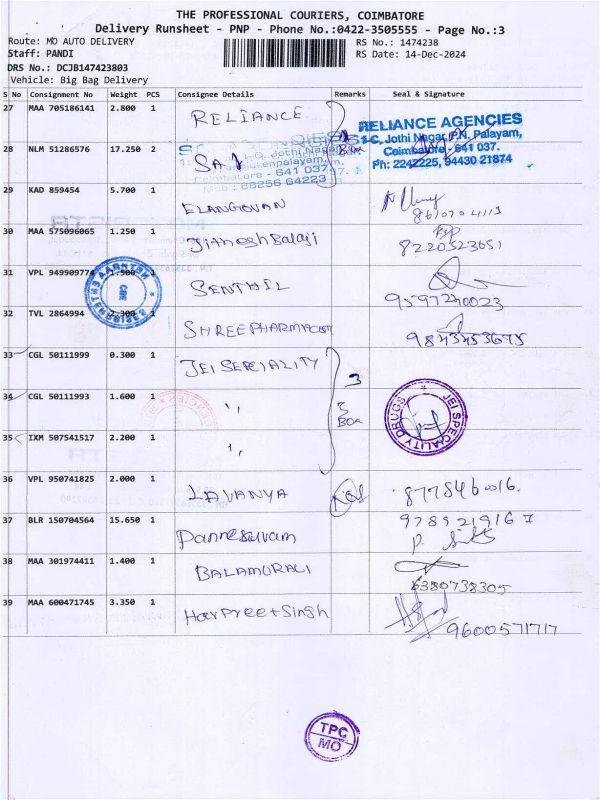 THE PROFESSIONAL COURIERS, COIMBATORE
Delivery Runsheet - PNP - Phone No.:0422-3505555 - Page No.:3
Route: MO AUTO DELIVERY
RS No.: 1474238
Staff: PANDI
RS Date: 14-Dec-2024
DRS No.: DCJB147423803
Vehicle: Big Bag Delivery
S No Consignment No Weight PCS Consignee Details Remarks Seal & Signature
27 MAA 705186141 2.800 1 RELIANCE
RELIANCE AGENCIES
Jothi Nagar, P.N. Palayam,
Coimbatore - 641 037.
Ph: 2242225, 94430 21874
28 NLM 51286576 17.250 2
Coimbatore - 641 037.
29 KAD 859454 5.700 1 ELANGOVAN
30 MAA 575096065 1.250 1 Jithesh Balaji 8220523651
31 VPL 949909774 1.500 1 SENTHIL 9597240023
ENTERPRISES
CBE
32 TVL 2864994 2.300 1 SHREE PHARMACIST 9843453675
33 CGL 50111999 0.300 1 JEI SPECIALITY
34 CGL 50111993 1.600 1 ,, 3 Box
JEI SPECIALITY DRUGS
35 IXM 507541517 2.200 1 ,,
36 VPL 950741825 2.000 1 LAVANYA 8778460016.
37 BLR 150704564 15.650 1 Panneselvam 9789219167
38 MAA 301974411 1.400 1 BALAMURALI 6380738305
39 MAA 600471745 3.350 1 Harpreet Singh 9600571717
TPC
MO